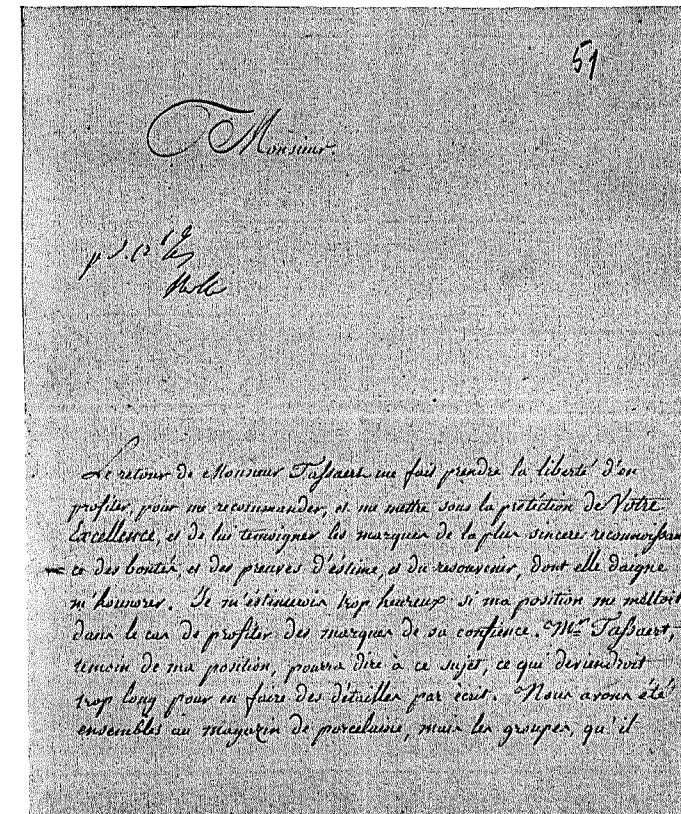 51
Monsieur.
Le retour de Monsieur Tassaert me fais prendre la liberté d'en
profiter, pour me recommander, et me mettre sous la protéction de Votre
Excellence, et de lui temoigner les marques de la plus sincere reconnoissan
ce des bontés, et des preuves d'éstime, et du resouvenir, dont elle daigne
m'honnorer. Je m'éstimerois trop heureux si ma position me mettoit
dans le cas de profiter des marques de sa confience. Mr Tassaert,
temoin de ma position, pourra dire à ce sujét, ce qui deviendroit
trop long pour en faire des détailles par écrit. Nous avons été
ensembles au magazin de porcelaine, mais les groupes, qu'il